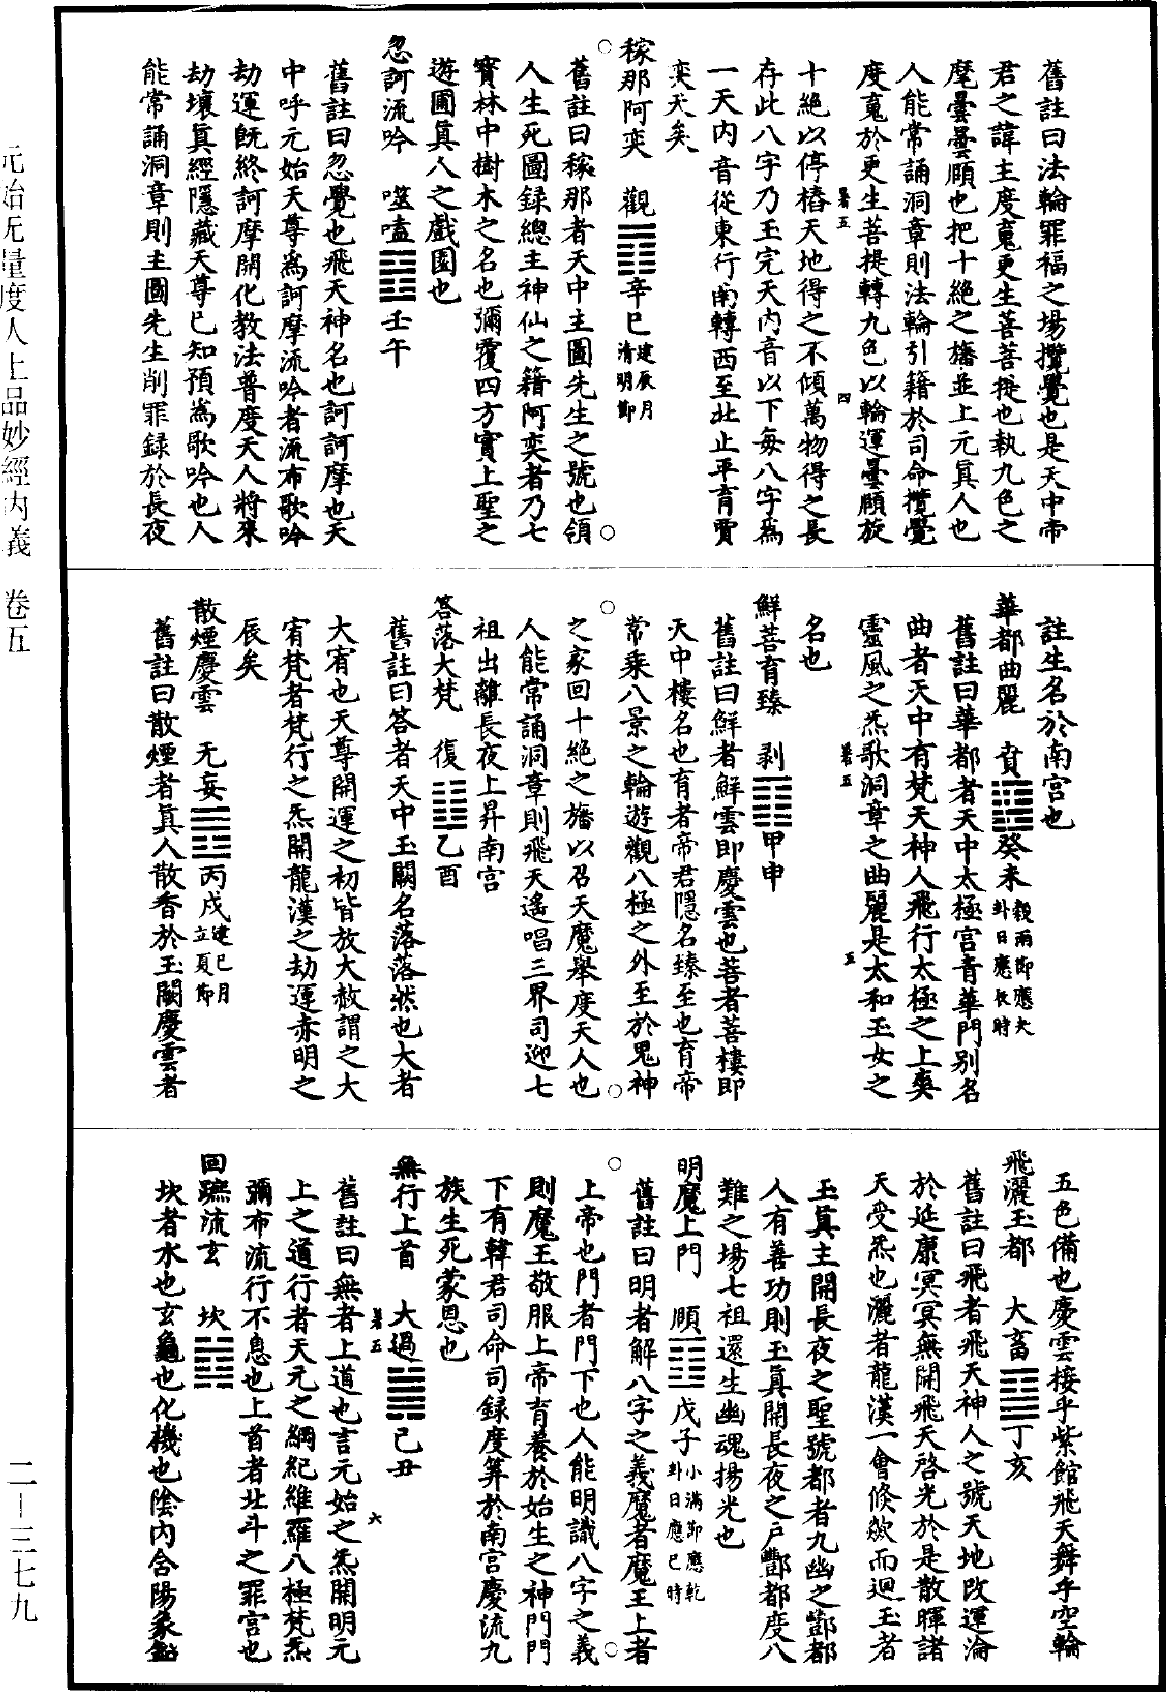 舊註曰法輪罪福之場攬覺也是天中帝
君之諱主度䰟更生菩菩提也執九色之
麾曇曇願也把十絕之旛並上元眞人也
人能常誦洞章則法輪引籍於司命攬覺
度䰟於更生菩提轉九色以輪運曇願旋
十絕以停樁天地得之不傾萬物得之長
存此八字乃玉完天內音以下每八字爲
一天內音從東行南轉西至北止平育賈
奕天矣
稼那阿奕 觀䷓辛巳建辰月清明節
舊註曰稼那者天中主圖先生之號也領
人生死圖錄總主神仙之籍阿奕者乃七
寶林中樹木之名也彌覆四方實上聖之
遊圃眞人之戲園也
忽訶流吟 噬嗑䷔壬午
舊註曰忽覺也飛天神名也訶訶摩也天
中呼元始天尊爲訶摩流吟者流布歌吟
劫運旣終訶摩開化教法普度天人將來
劫壞眞經隱藏天尊已知預爲歌吟也人
能常誦洞章則主圖先生削罪録於長夜
註生名於南宮也
華都曲麗 賁䷕癸未穀雨節應大卦日應長時
舊註曰華都者天中太極宮青華門別名
曲者天中有梵天神人飛行太極之上奭
靈風之炁歌洞章之曲麗是太和玉女之
名也
鮮菩育臻 剥䷖甲申
舊註曰鮮者鮮雲即慶雲也菩者菩樓即
天中樓名也育者帝君隱名臻至也育帝
常乘八景之輪遊觀八極之外至於鬼神
之家回十絕之旛以召天魔舉度天人也
人能常誦洞章則飛天遙唱三界司迎七
祖出離長夜上昇南宮
答落大梵 復䷗乙酉
舊註曰答者天中玉闕名落落然也大者
大宥也天尊開運之初皆放大赦謂之大
宥梵者梵行之炁開龍漢之劫運赤明之
辰矣
散煙慶雲 无妄䷘丙戌建巳月立夏節
舊註曰散煙者眞人散香於玉闕慶雲者
五色備也慶雲接乎紫館飛天舞乎空輪
飛灑玉都 大畜䷙丁亥
舊註曰飛者飛天神人之號天地改運淪
於延康冥冥無開飛天啓光於是散暉諸
天受炁也灑者龍漢一會倏歘而迴玉者
玉眞主開長夜之聖號都者九幽之酆都
人有善功則玉眞開長夜之戶酆都度八
難之場七祖還生幽魂揚光也
明魔上門 頤䷚戊子小滿節應乾卦日應巳時
舊註曰明者解八字之義魔者魔王上者
上帝也門者門下也人能明識八字之義
則魔王敬服上帝育養於始生之神門門
下有韓君司命司録度筭於南宮慶流九
族生死蒙恩也
無行上首 大過䷛己丑
舊註曰無者上道也言元始之炁開明元
上之道行者天元之綱紀維羅八極梵炁
彌布流行不息也上首者北斗之罪宮也
回蹠流玄 坎䷜
坎者水也玄龜也化機也陰內含陽象
元始无量度人上品妙經內義 卷五
二—三七九